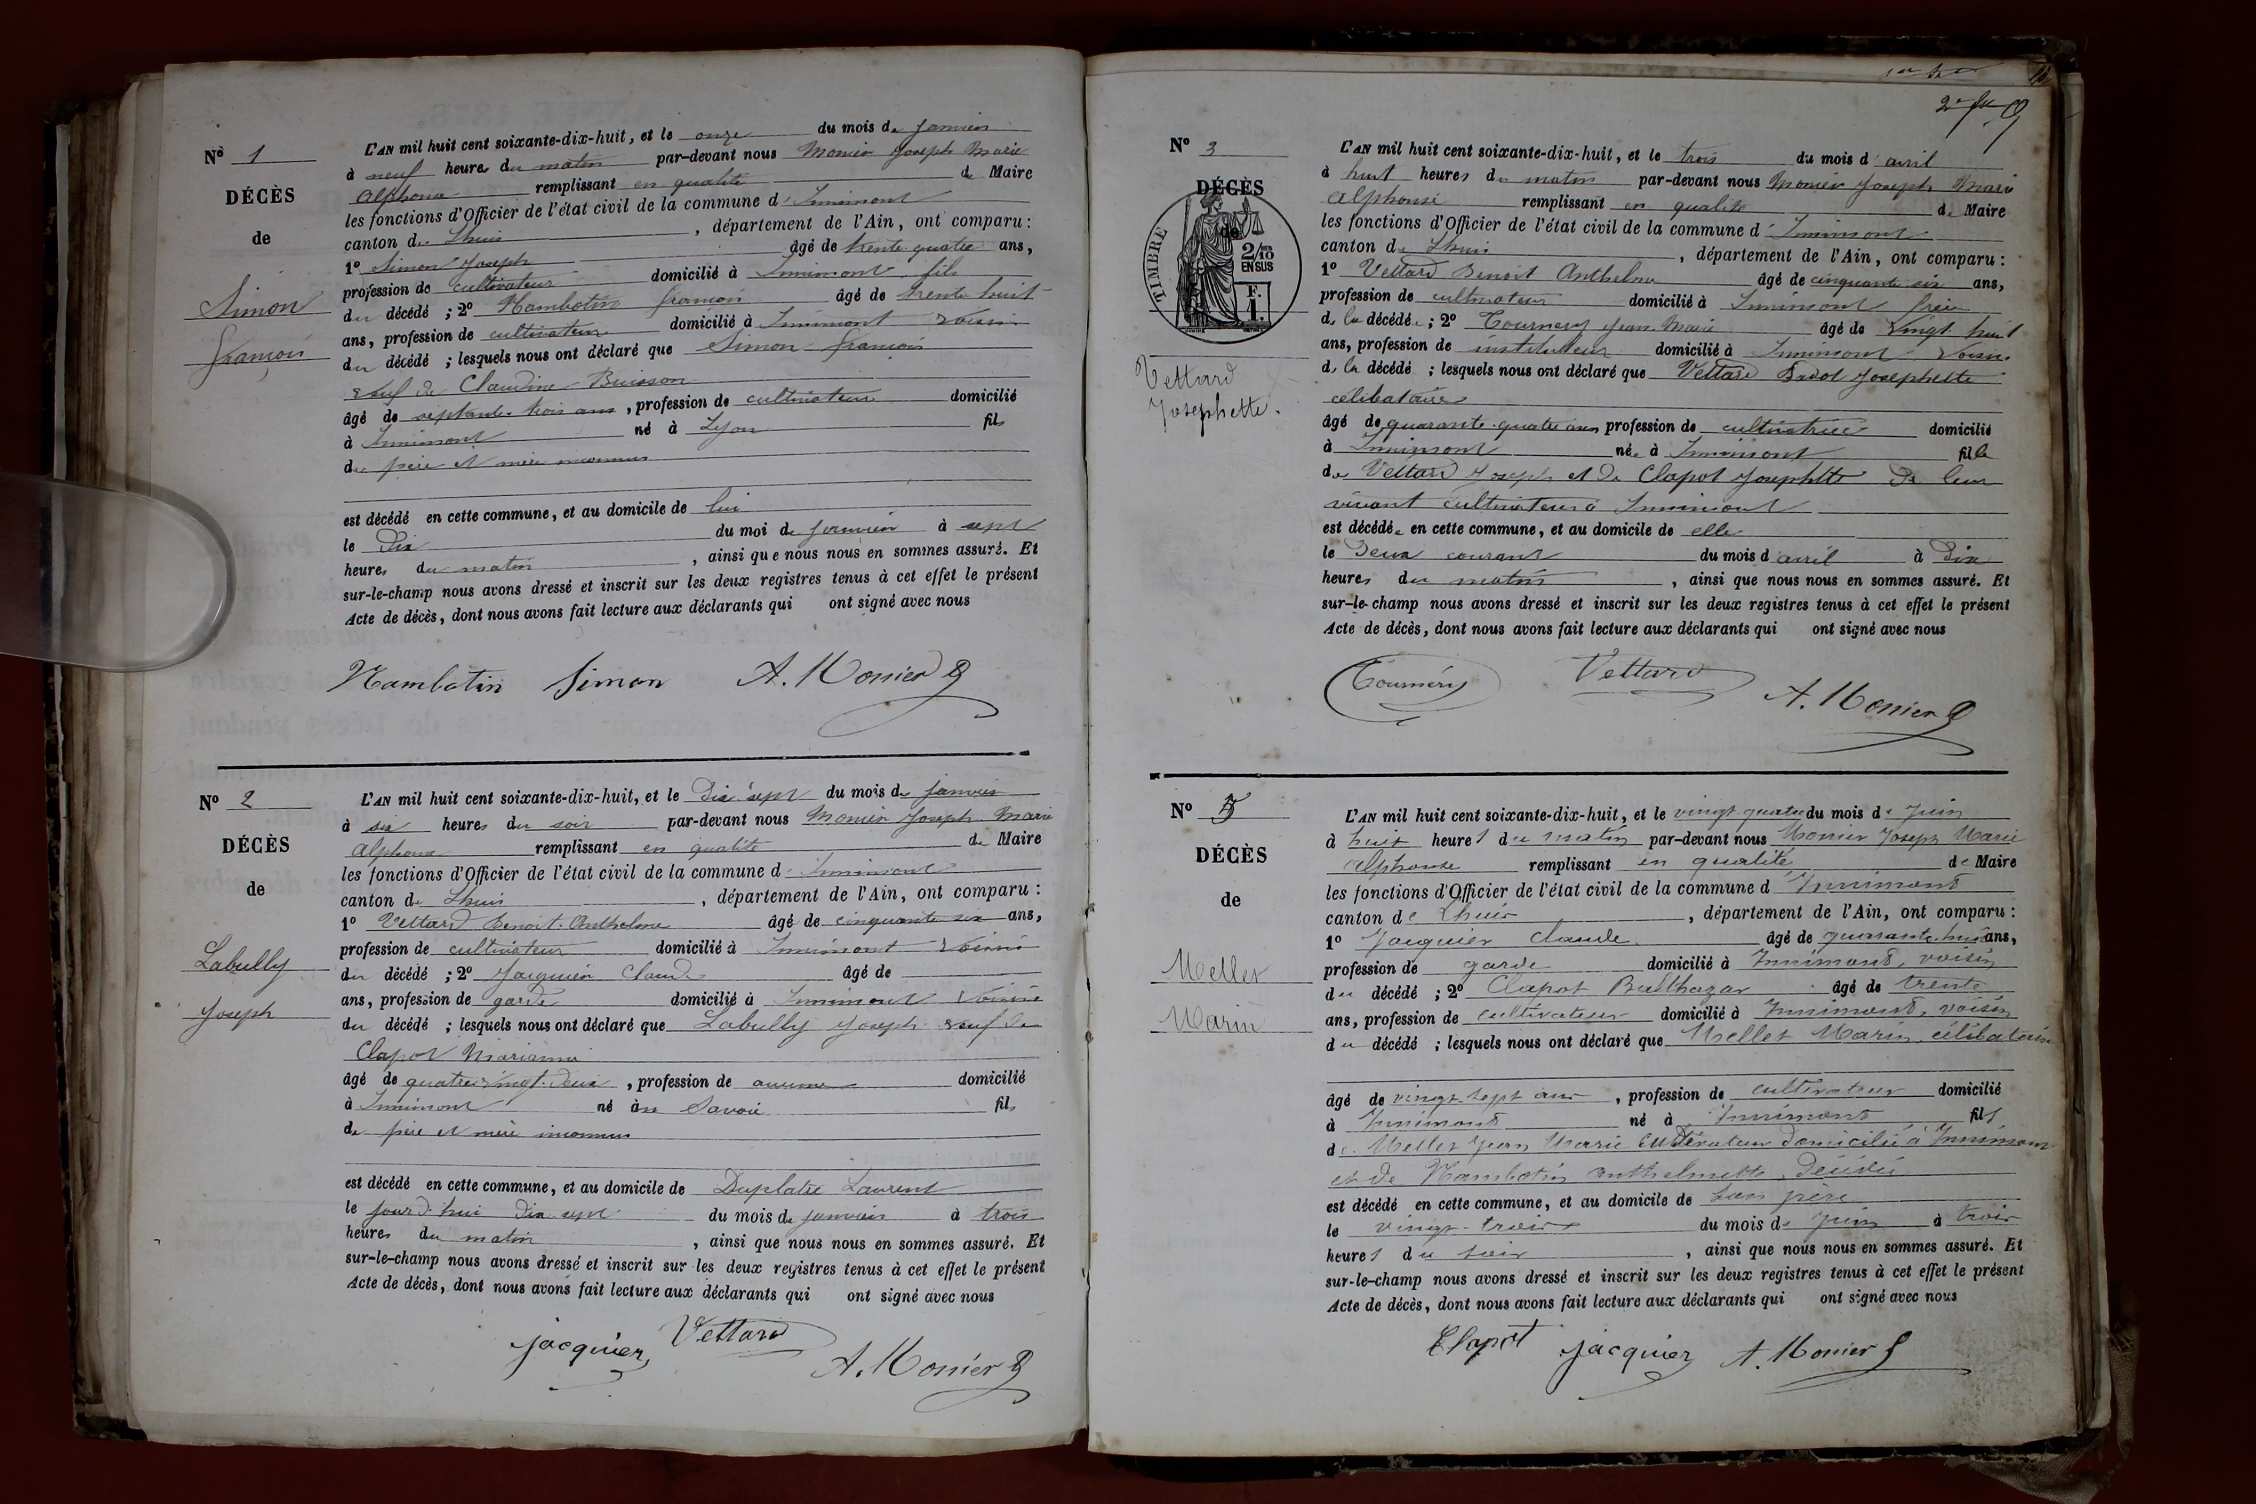 Nº 1
DÉCÈS
de
Simon
françois
L'AN mil huit cent soixante-dix-huit, et le onze du mois de janvier
à neuf heures du matin par-devant nous Monier Joseph Marie
Alphonse remplissant en qualité de Maire
les fonctions d'Officier de l'état civil de la commune d'Innimont
canton de Lhuis, département de l'Ain, ont comparu :
1º Simon Joseph âgé de trente quatre ans,
profession de cultivateur domicilié à Innimont fils
du décédé ; 2º Nambotin françois âgé de trente huit
ans, profession de cultivateur domicilié à Innimont voisin
du décédé ; lesquels nous ont déclaré que Simon françois
veuf de Claudine Buisson
âgé de septante trois ans, profession de cultivateur domicilié
à Innimont né à Lyon fils
de père et mère inconnus
est décédé en cette commune, et au domicile de lui
le dix du moi de janvier à sept
heures du matin, ainsi que nous nous en sommes assuré. Et
sur-le-champ nous avons dressé et inscrit sur les deux registres tenus à cet effet le présent
Acte de décès, dont nous avons fait lecture aux déclarants qui ont signé avec nous
Nambotin Simon A. Monier
Nº 2
DÉCÈS
de
Labully
Joseph
L'AN mil huit cent soixante-dix-huit, et le dix sept du mois de janvier
à six heures du soir par-devant nous Monier Joseph Marie
Alphonse remplissant en qualité de Maire
les fonctions d'Officier de l'état civil de la commune d'Innimont
canton de Lhuis, département de l'Ain, ont comparu :
1º Vettard Benoit Anthelme âgé de cinquante six ans,
profession de cultivateur domicilié à Innimont voisin
du décédé ; 2º Jacquier Claude âgé de
ans, profession de garde domicilié à Innimont voisin
du décédé ; lesquels nous ont déclaré que Labully Joseph veuf de
Clapot Marianne
âgé de quatre vingt deux, profession de aucune domicilié
à Innimont né à en Savoie fils
de père et mère inconnus
est décédé en cette commune, et au domicile de Duplatre Laurent
le jour d'hui dix sept du mois de janvier à trois
heures du matin, ainsi que nous nous en sommes assuré. Et
sur-le-champ nous avons dressé et inscrit sur les deux registres tenus à cet effet le présent
Acte de décès, dont nous avons fait lecture aux déclarants qui ont signé avec nous
jacquier Vettard A. Monier
Nº 3
DÉCÈS
de
TIMBRE
2/10
EN SUS
F.
1.
Vettard
Josephette.
L'AN mil huit cent soixante-dix-huit, et le trois du mois d'avril
à huit heures du matin par-devant nous Monier Joseph Marie
Alphonse remplissant en qualité de Maire
les fonctions d'Officier de l'état civil de la commune d'Innimont
canton de Lhuis, département de l'Ain, ont comparu :
1º Vettard Benoit Anthelme âgé de cinquante six ans,
profession de cultivateur domicilié à Innimont frère
de la décédée ; 2º Tournery Jean Marie âgé de vingt huit
ans, profession de instituteur domicilié à Innimont voisin
de la décédé ; lesquels nous ont déclaré que Vettard Josephette
célibataire
âgé de quarante-quatre ans profession de cultivatrice domicilié
à Innimont née à Innimont fille
de Vettard Joseph et de Clapot Josephette de leur
vivant cultivateurs à Innimont
est décédée en cette commune, et au domicile de elle
le deux courant du mois d'avril à dix
heures du matin, ainsi que nous nous en sommes assuré. Et
sur-le-champ nous avons dressé et inscrit sur les deux registres tenus à cet effet le présent
Acte de décès, dont nous avons fait lecture aux déclarants qui ont signé avec nous
Tournéry Vettard
A. Monier
Nº
DÉCÈS
de
Mellet
Marin
L'AN mil huit cent soixante-dix-huit, et le vingt quatre du mois de juin
à huit heures du matin par-devant nous Monier Joseph Marie
Alphonse remplissant en qualité de Maire
les fonctions d'Officier de l'état civil de la commune d'Innimond
canton de Lhuis, département de l'Ain, ont comparu :
1º Jacquier Claude âgé de quarante huit ans,
profession de garde domicilié à Innimond, voisin
du décédé ; 2º Clapot Balthazar âgé de trente
ans, profession de cultivateur domicilié à Innimond, voisin
du décédé ; lesquels nous ont déclaré que Mellet Marin, célibataire
âgé de vingt-sept ans, profession de cultivateur domicilié
à Innimond né à Innimond fils
de Mellet Jean Marie cultivateur domicilié à Innimond
et de Nambotin Anthelmette, décédée
est décédé en cette commune, et au domicile de son père
le vingt-trois du mois de juin à trois
heures du soir, ainsi que nous nous en sommes assuré. Et
sur-le-champ nous avons dressé et inscrit sur les deux registres tenus à cet effet le présent
Acte de décès, dont nous avons fait lecture aux déclarants qui ont signé avec nous
Clapot jacquier A. Monier